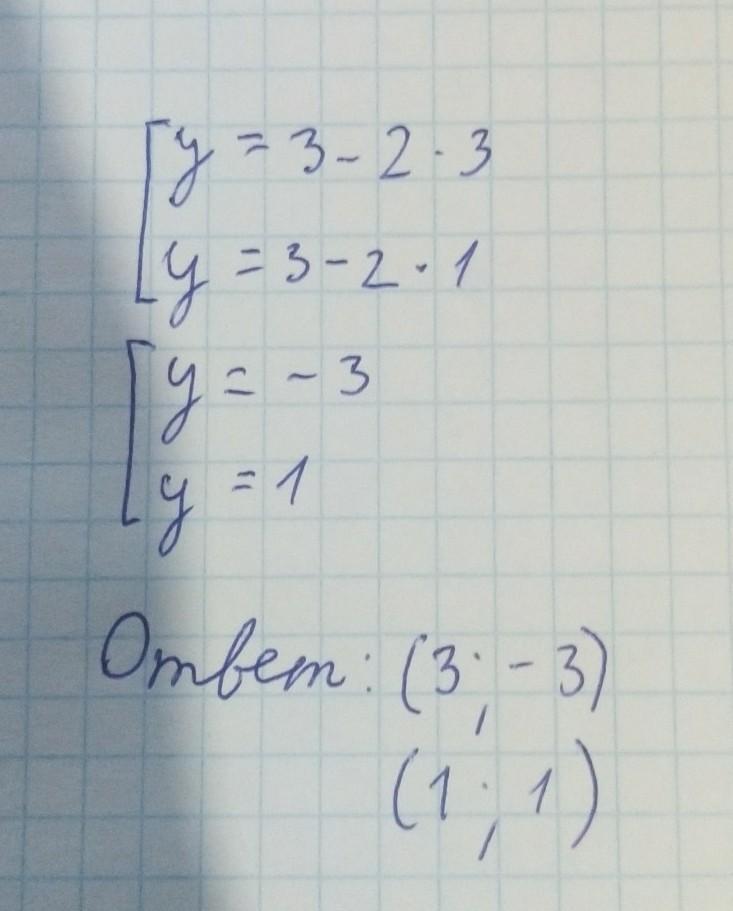 y = 3 - 2 · 3
y = 3 - 2 · 1
y = - 3
y = 1
Ответ: (3; - 3)
(1; 1)